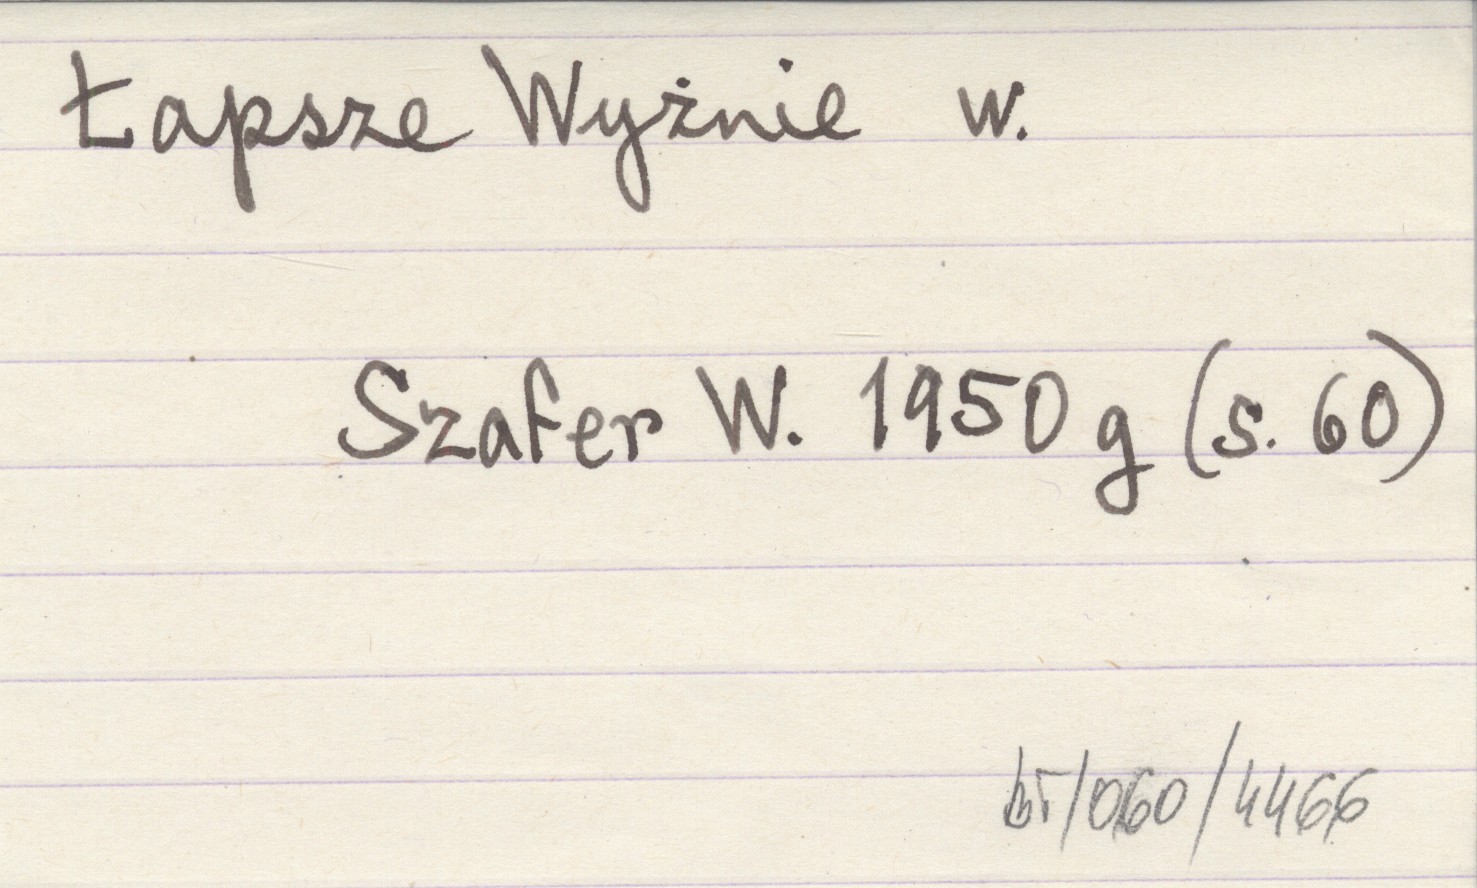 Łapsze Wyżnie w.
Szafer W. 1950 g (s. 60)
/060/4466